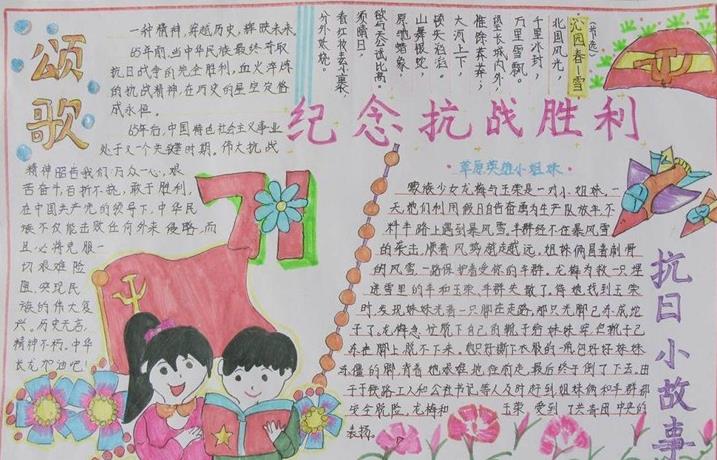 颂歌
一种精神，穿越历史，辉映未来。
65年前，当中华民族最终夺取
抗日战争的完全胜利，血火淬炼
的抗战精神，在历史的星空定格
成永恒。
65年后，中国特色社会主义事业
处于又一个关键时期。伟大抗战
精神昭告我们：万众一心，艰
苦奋斗，百折不挠，敢于胜利，
在中国共产党的领导下，中华民
族不仅能击败任何外来侵略，而
且必将克服一
切艰难险
阻，实现民
族的伟大复
兴，历史无言，
精神不朽。中华
长龙加油吧！
沁园春—雪
（节选）
北国风光，
千里冰封，
万里雪飘。
望长城内外，
惟余莽莽；
大河上下，
顿失滔滔。
山舞银蛇，
原驰蜡象，
欲与天公试比高。
须晴日，
看红妆素裹，
分外妖娆。
纪念抗战胜利
71
草原英雄小姐妹
蒙族少女龙梅与玉荣是一对小姐妹，一
天她们利用假日自告奋勇为生产队放羊，不
料半路上遇到暴风雪，羊群经不住暴风雪
的袭击，顺着风势越走越远，姐妹俩冒着刺骨
的风雪，一路保护着心爱的羊群。龙梅为救一只埋
进雪里的羊和玉荣、羊群失散了。待她找到玉荣
时，发现妹妹光着一只脚在走路，那只光脚已冻成坨
子了。龙梅急忙脱下自己的靴子给妹妹穿，但靴子已
冻在脚上脱不下来。她只好撕下衣服的一角包好妹妹
冻僵的脚，背着她艰难地往前走，最后终于倒了下去。由
于铁路工人和公社书记等人及时赶到，姐妹俩和羊群都
安全脱险。龙梅和玉荣受到了共青团中央的
表扬。
抗日小故事